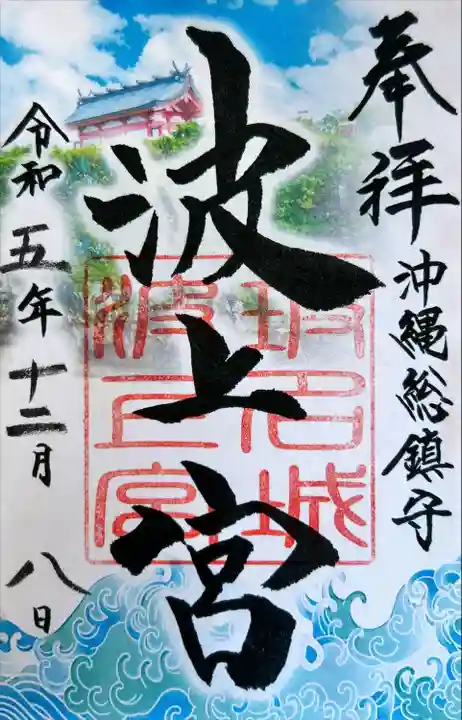 奉拝
沖縄総鎮守
波上宮
令和五年十二月八日
波上宮